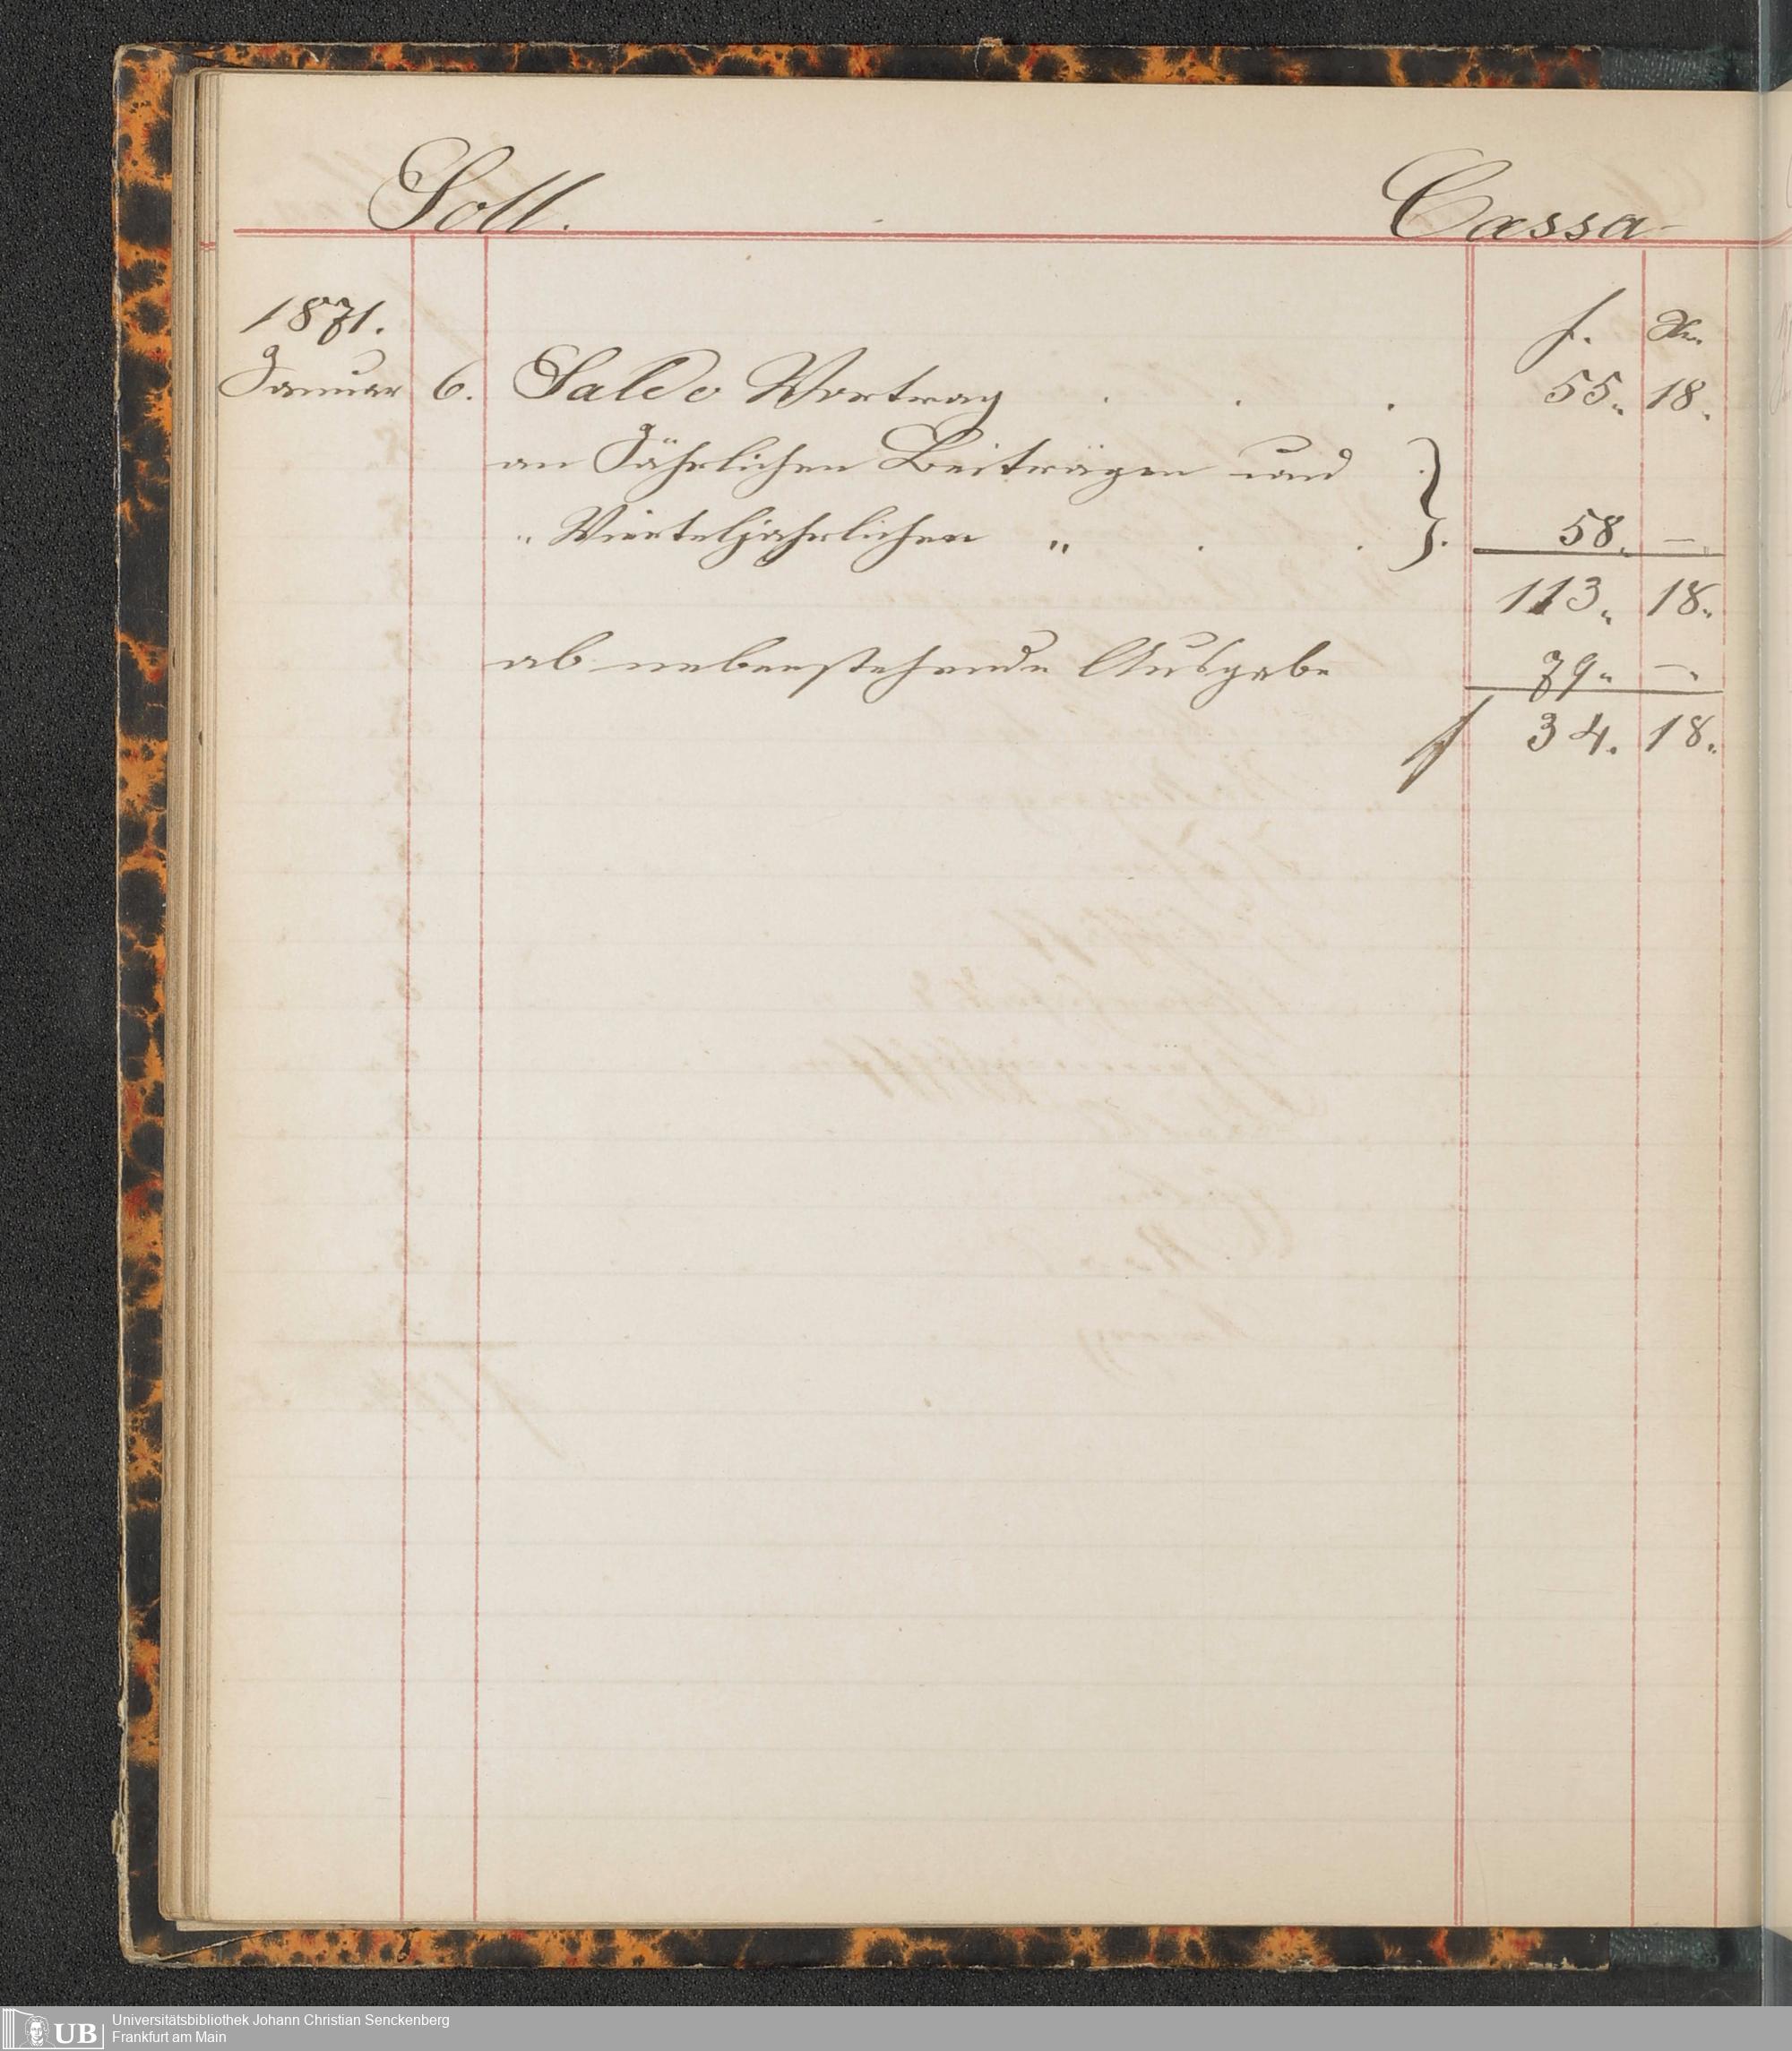 Soll. Cassa
1871. f. Xr.
Januar 6. Saldo Vortrag . . . 55. 18.
an Jährlichen Beiträgen und }
" Vierteljährlichen " . . }. 58. —
113. 18.
ab nebenstehende Ausgabe 79. —
f 34. 18.
UB Universitätsbibliothek Johann Christian Senckenberg
Frankfurt am Main